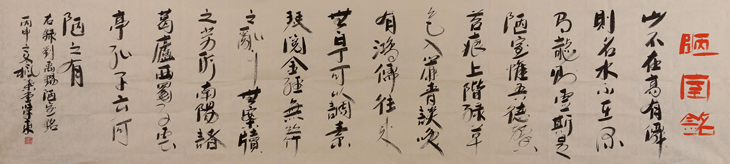 陋室銘
山不在高有僊
則名水不在深
有龍則靈斯是
陋室惟吾德馨
苔痕上階緑草
色入簾青談笑
有鴻儒往來
無白丁可以調素
琴閱金經無絲竹
之亂耳無案牘
之勞形南陽諸
葛廬西蜀子雲
亭孔子云何
陋之有
右錄劉禹錫陋室銘
丙申